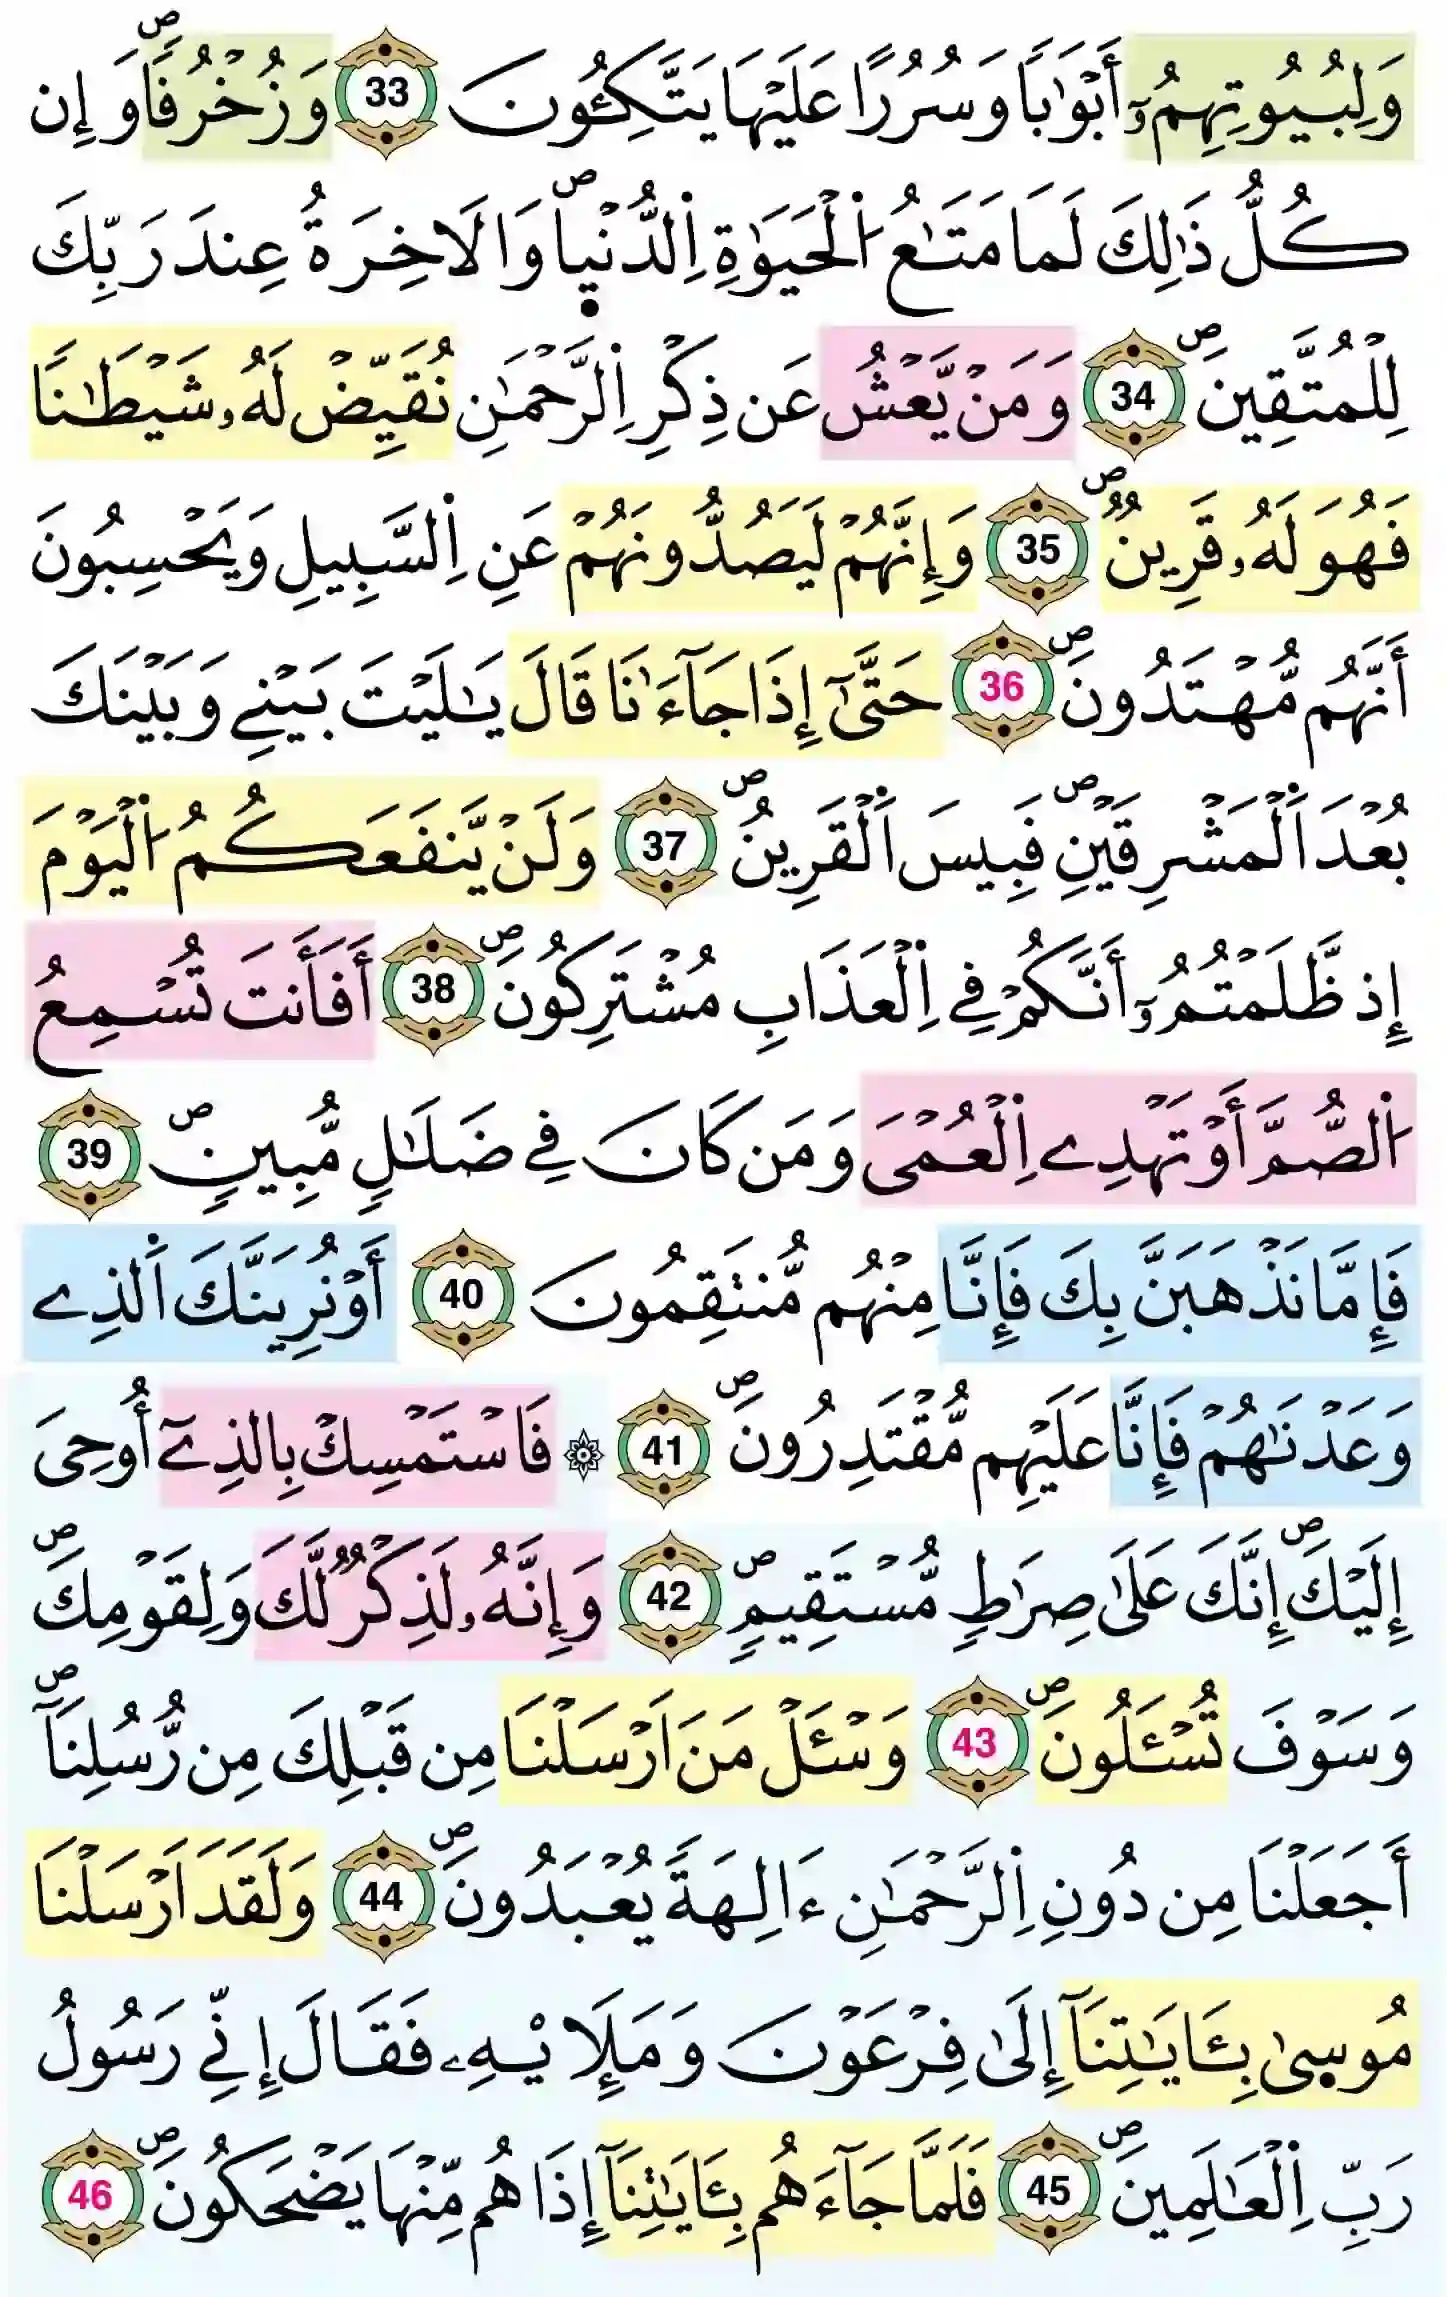 وَلِبُيُوتِهِمُۥٓ أَبْوَٰباٗ وَسُرُراً عَلَيْهَا يَتَّكِـُٔونَ 33 وَزُخْرُفاٗۖ وَإِن
كُلُّ ذَٰلِكَ لَمَا مَتَٰعُ اُ۬لْحَيَوٰةِ اِ۬لدُّنْي۪اۖ وَالَاخِرَةُ عِندَ رَبِّكَ
لِلْمُتَّقِينَۖ 34 وَمَنْ يَّعْشُ عَن ذِكْرِ اِ۬لرَّحْمَٰنِ نُقَيِّضْ لَهُۥ شَيْطَٰناٗ
فَهُوَ لَهُۥ قَرِينٞۖ 35 وَإِنَّهُمْ لَيَصُدُّونَهُمْ عَنِ اِ۬لسَّبِيلِ وَيَحْسِبُونَ
أَنَّهُم مُّهْتَدُونَۖ 36 حَتَّىٰٓ إِذَا جَآءَٰنَا قَالَ يَٰلَيْتَ بَيْنِے وَبَيْنَكَ
بُعْدَ اَ۬لْمَشْرِقَيْنِۖ فَبِيسَ اَ۬لْقَرِينُۖ 37 وَلَنْ يَّنفَعَكُمُ اُ۬لْيَوْمَ
إِذ ظَّلَمْتُمُۥٓ أَنَّكُمْ فِے اِ۬لْعَذَابِ مُشْتَرِكُونَۖ 38 أَفَأَنتَ تُسْمِعُ
اُ۬لصُّمَّ أَوْ تَهْدِے اِ۬لْعُمْىَ وَمَن كَانَ فِے ضَلَٰلٖ مُّبِينٖۖ 39
فَإِمَّا نَذْهَبَنَّ بِكَ فَإِنَّا مِنْهُم مُّنتَقِمُونَ 40 أَوْ نُرِيَنَّكَ اَ۬لذِے
وَعَدْنَٰهُمْ فَإِنَّا عَلَيْهِم مُّقْتَدِرُونَۖ 41 ۞ فَاسْتَمْسِكْ بِالذِےٓ أُوحِىَ
إِلَيْكَۖ إِنَّكَ عَلَىٰ صِرَٰطٖ مُّسْتَقِيمٖۖ 42 وَإِنَّهُۥ لَذِكْرٞ لَّكَ وَلِقَوْمِكَۖ
وَسَوْفَ تُسْـَٔلُونَۖ 43 وَسْـَٔلْ مَنَ اَرْسَلْنَا مِن قَبْلِكَ مِن رُّسُلِنَآۖ
أَجَعَلْنَا مِن دُونِ اِ۬لرَّحْمَٰنِ ءَالِهَةٗ يُعْبَدُونَۖ 44 وَلَقَدَ اَرْسَلْنَا
مُوس۪ىٰ بِـَٔايَٰتِنَآ إِلَىٰ فِرْعَوْنَ وَمَلَإِيْهِۦ فَقَالَ إِنِّے رَسُولُ
رَبِّ اِ۬لْعَٰلَمِينَۖ 45 فَلَمَّا جَآءَهُم بِـَٔايَٰتِنَآ إِذَا هُم مِّنْهَا يَضْحَكُونَۖ 46